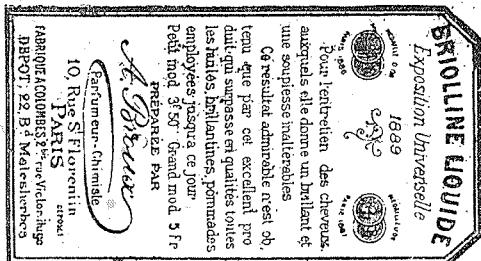 BRIOLLINE LIQUIDE
Exposition Universelle
1889
MEDAILLE D'OR
PARIS 1886
MEDAILLE
PARIS 1887
Pour l'entretien des cheveux,
auxquels elle donne un brillant et
une souplesse inaltérables
Ce résultat admirable n'est ob,
tenu que par cet excellent pro
duit qui surpasse en qualités toutes
les huiles, brillantines, pommades
employées jusqu'a ce jour.
Petit mod 3f 50 Grand mod 5 Fr
PRÉPARÉE PAR
Parfumeur-Chimiste
10, Rue St Florentin
PARIS
FABRIQUE A COLOMBES, 2bis rue Victor-Hugo
DEPOT: 22 Bd Malesherbes